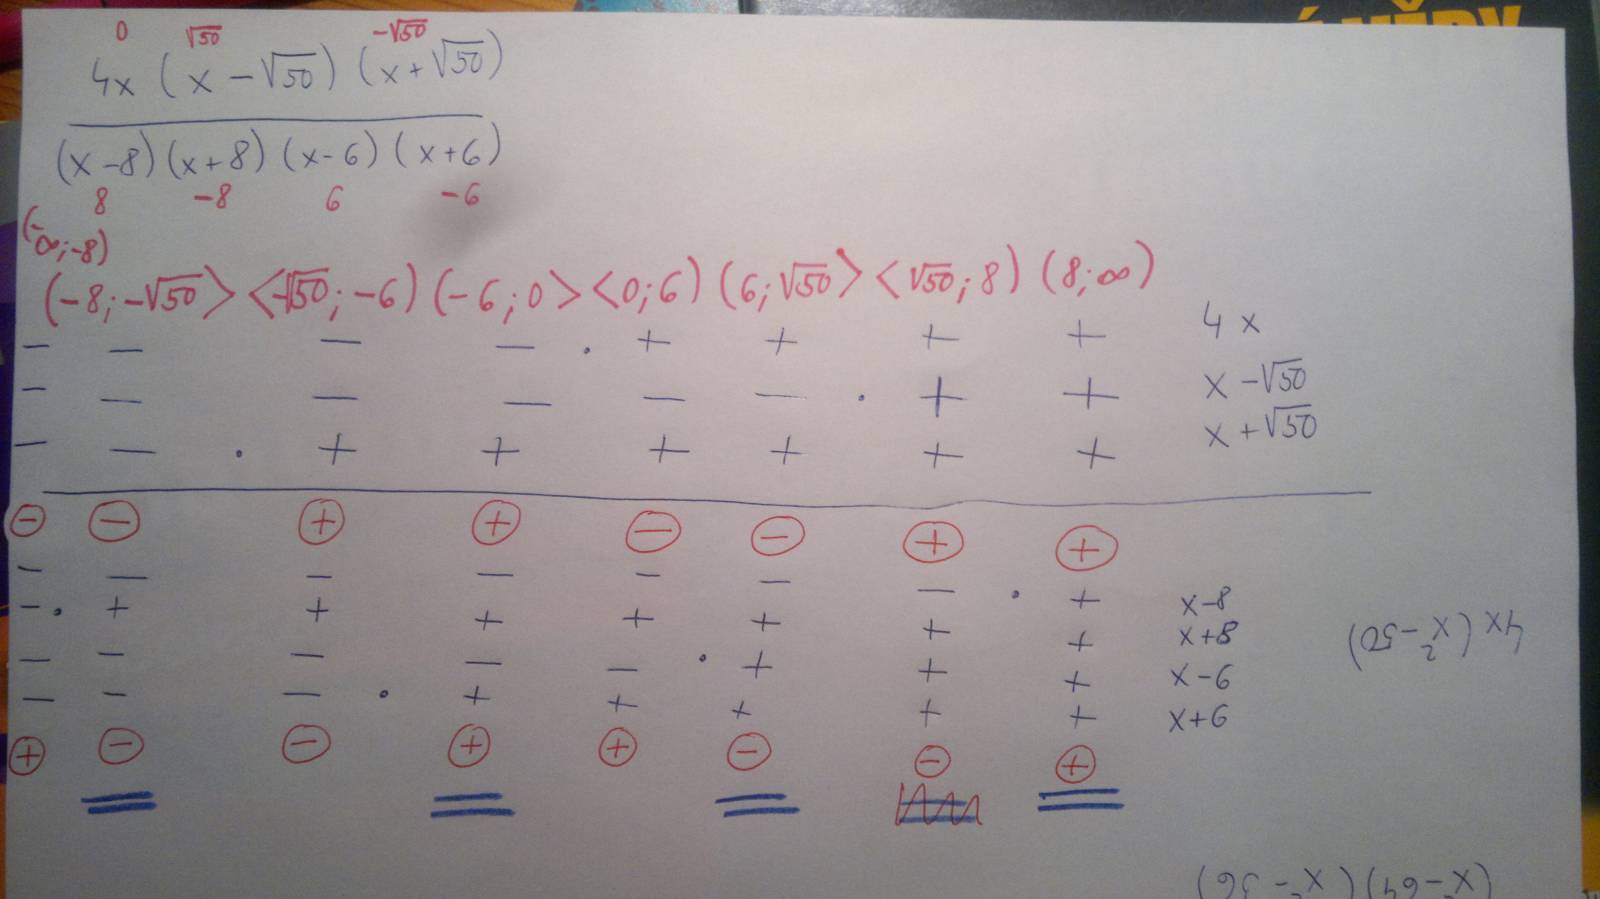 0 √50 -√50
4x (x-√50) (x+√50)
(x-8) (x+8) (x-6) (x+6)
8 -8 6 -6
(-∞;-8)
(-8;-√50> <-√50;-6) (-6;0> <0;6) (6;√50> <√50;8) (8;∞)
- - - - . + + + + 4x
- - - - - - . + + x-√50
- - . + + + + + + x+√50
- - + + - - + +
- - - - - - - . + x-8
- . + + + + + + + x+8
- - - - - . + + + x-6
- - - . + + + + + x+6
+ - - + + - - +
4x(x²-50)
(x²-64)(x²-36)